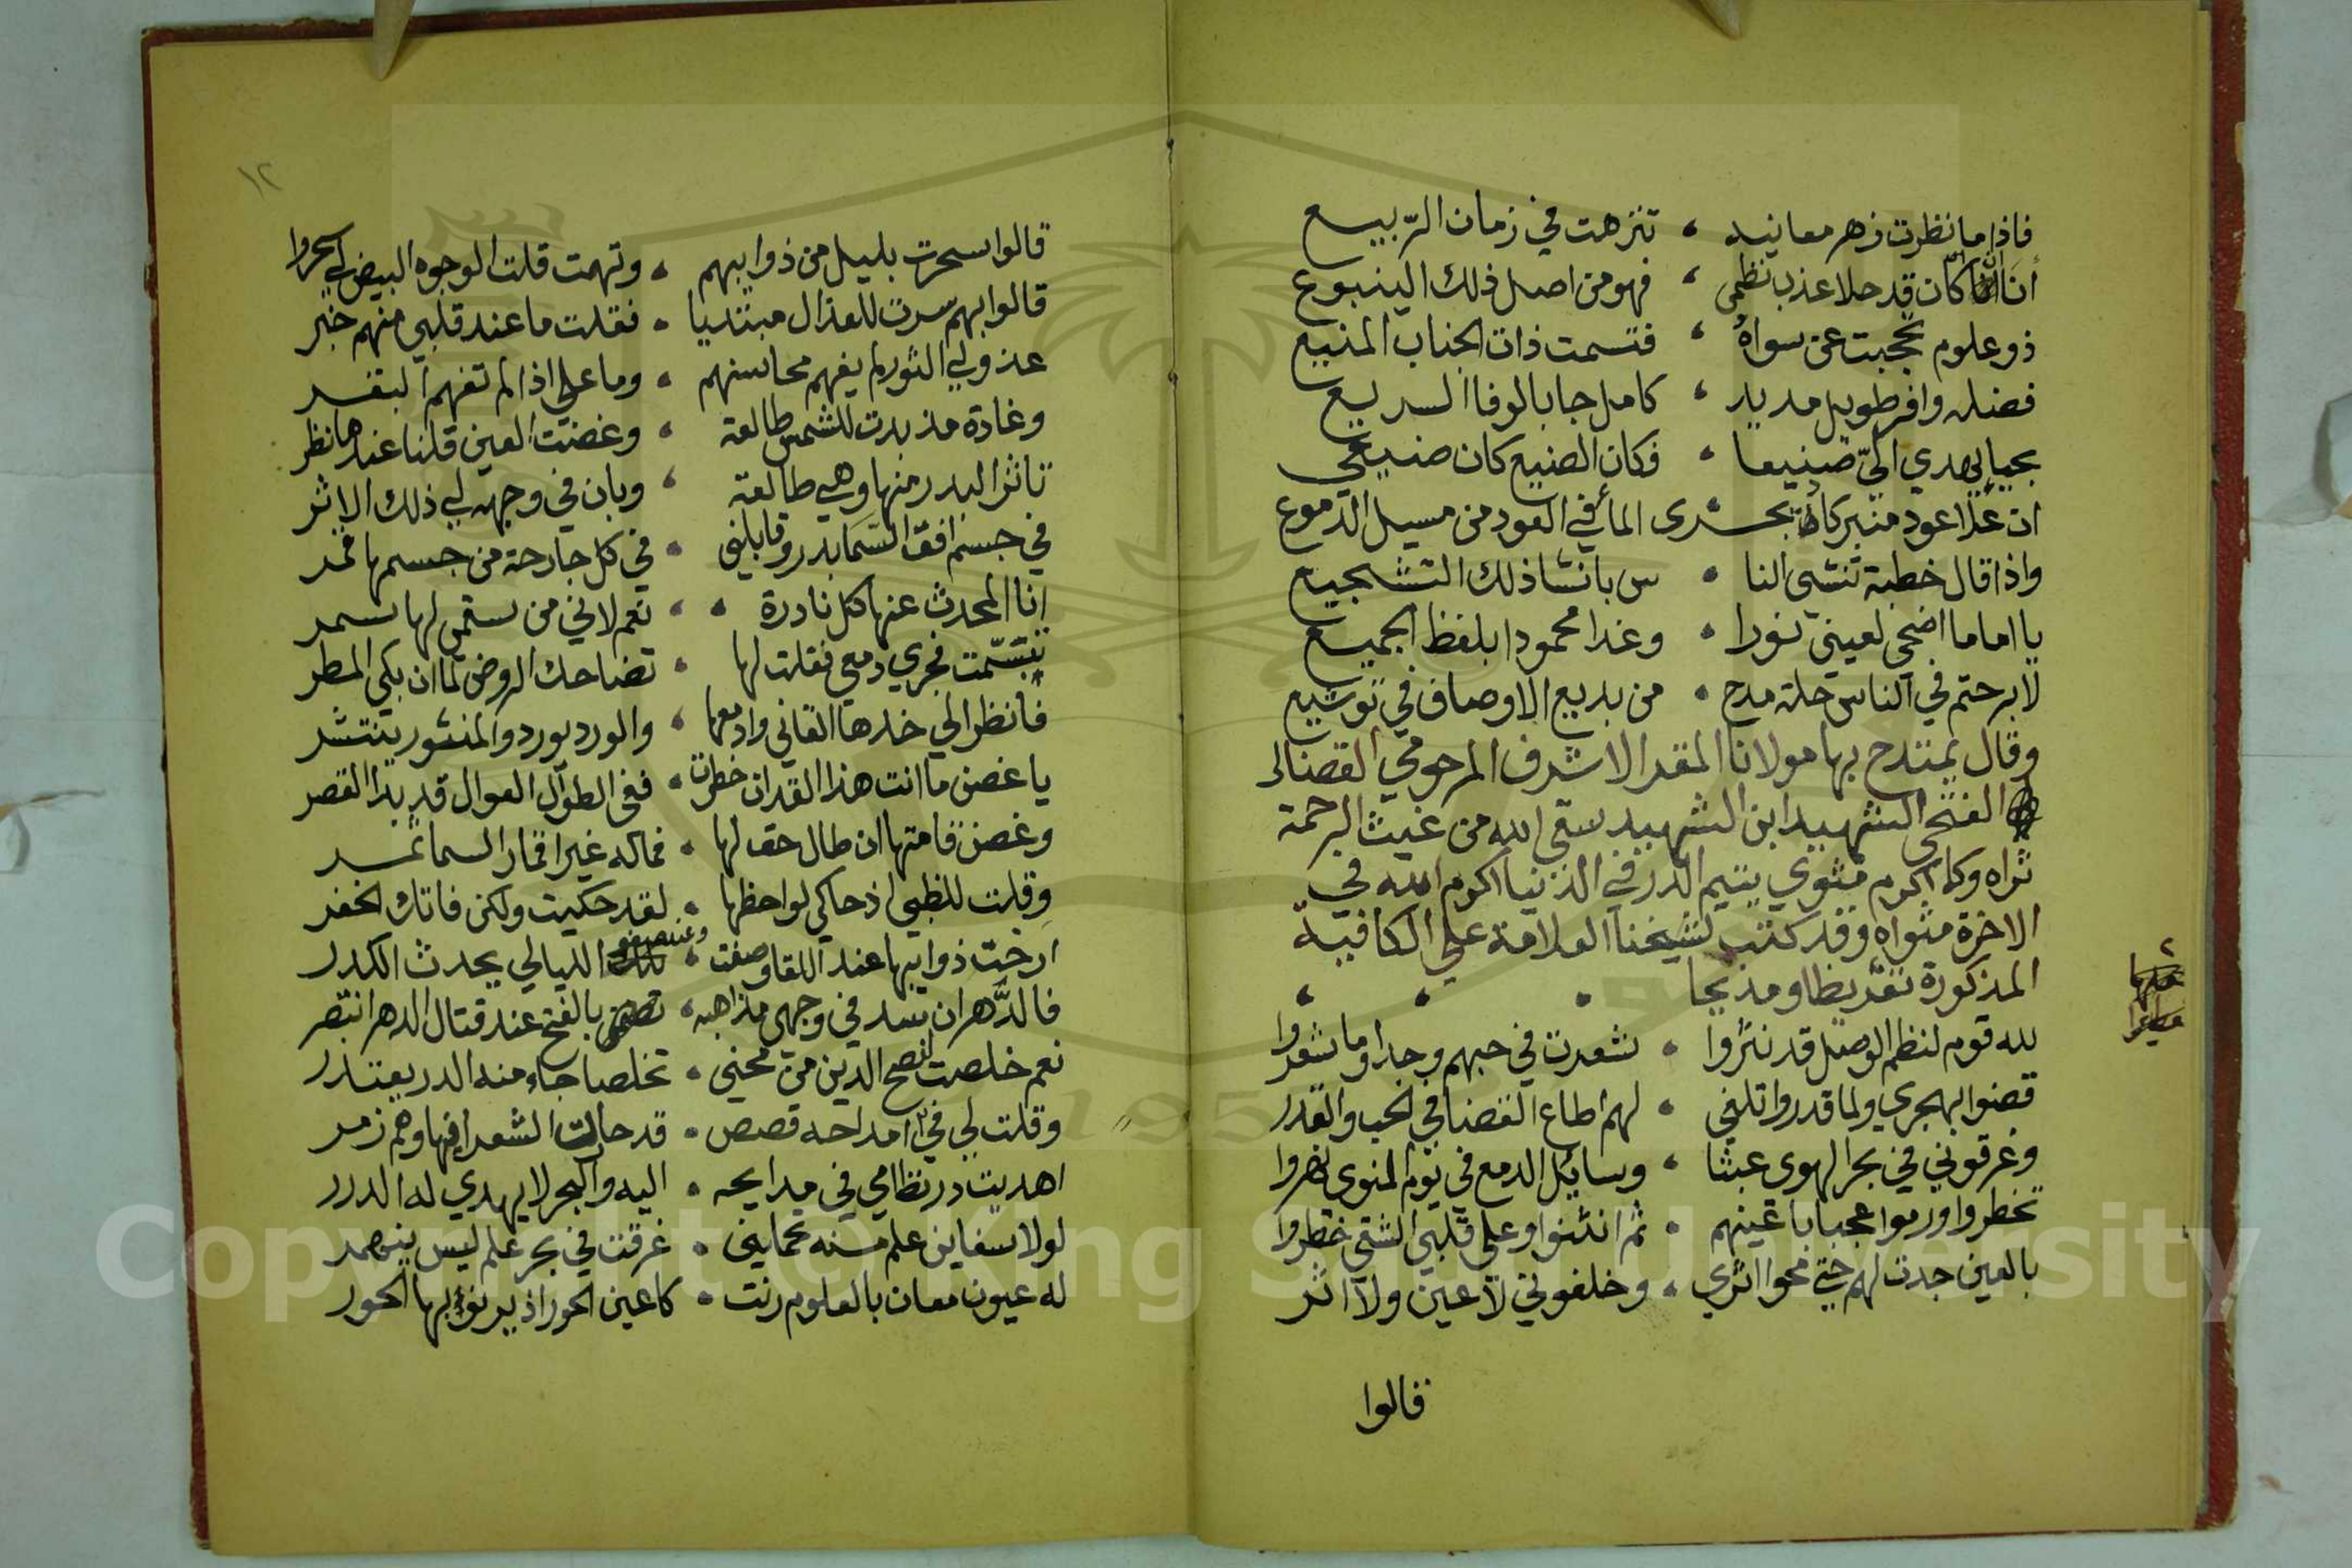 فاذا ما نظرت زهر معانيه ، تنزهت في زمان الربيع
أنا ان كان قد حلا عذب نظمى ، فهو من اصل ذلك الينبوع
ذو علوم تحجبت عن سواه ، فتسمت ذات الجناب المنيع
فضله وافر طويل مديد ، كامل جا بالوفا السريع
يهدي اليّ صنيعا ، فكان الصنيع كان صنيعي
ان علا عود منبر كاد يخـ ـشرى الما في العود من مسيل الدموع
واذا قال خطبة تنتشى النا ، س بانشا ذلك التشجيع
يا اماما اضحى لعينى نورا ، وغدا محمودا بلفظ الجميع
لا برحتم في الناس حلة مدح ، من بديع الاوصاف في توشيع
وقال يمتدح بها مولانا المقر الاشرف المرحومي القضائى
الفتحى الشهيد ابن الشهيد سقى الله من غيث الرحمة
ثراه وكما اكرم مثوي يتيم الدر في الدنيا اكرم الله في
الاخرة مثواه وقد كتب لشيخنا العلامة على الكافية
المذكورة تقريظا ومديحا
لله قوم لنظم الوصل قد نثروا ، شعرت في حبهم وجدا وما شعروا
قضوا بهجري ولما قدروا تلفي ، لهم اطاع القضا في الحب والقدر
وغرقوني في بحر الهوى عبثا ، وسايل الدمع في يوم النوى نهروا
تخطروا ورموا عجبا باعينهم ، ثم انثنوا وعلى قلبي الشقي خطروا
بالعين جدت لهم حتى محوا اثري ، وخلفوني لا عين ولا اثر
قالوا
١٢
قالوا سحرت بليل من ذوايبهم ، وتهمت قلت الوجوه البيض لى سحروا
قالوا بهم سرت للعذال مبتديا ، فقلت ما عند قلبي منهم خبر
عذولي الثور لم يفهم محاسنهم ، وما علي اذا لم تفهم البقر
وغادة مذ بدت للشمس طالعة ، وغضت العين قلنا عندها نظر
تاثر البدر منها وهي طالعة ، وبان في وجهه لي ذلك الاثر
في جسم افق السما بدر وقابلني ، في كل جارحة من جسمها قمر
انا المحدث عنها كل نادرة ، نعم لاني من لها سمر
تبسمت فجري دمعي فقلت لها ، تضاحك الروض لما ان بكى المطر
فانظر الي خدها القاني وادمعها ، والورد يورد والمنثور ينتثر
يا غصن ما انت هذا القد ان خطرت ، ففى الطوال العوال قد بدا القصر
وغصن قامتها ان طال حق لها ، فما له غير اقمار السما ثمر
وقلت للظبي اذ حاكى لواحظها ، لقد حكيت ولكن فاتك الخفر
ارخت ذوايبها عند اللقا وصفت ، وعند صفو الليالي يحدث الكدر
فالدهر ان يسد في وجهى مذاهبه ، بالفتح عند قتال الدهر انتصر
نعم خلصت لفتح الدين من محني ، تخلصا جاء منه الدر يعتذر
وقلت لي في امداحه قصص ، قد حالت الشعرا فيها وهم زمر
اهديت در نظامي في مدايحه ، اليه والبحر لا يهدي له الدرر
لولا سفاين علم منه تحملني ، غرقت في بحر علم ليس ينحصر
له عيون معان بالعلوم رنت ، كاعين الحور اذ يرنو بها الحور